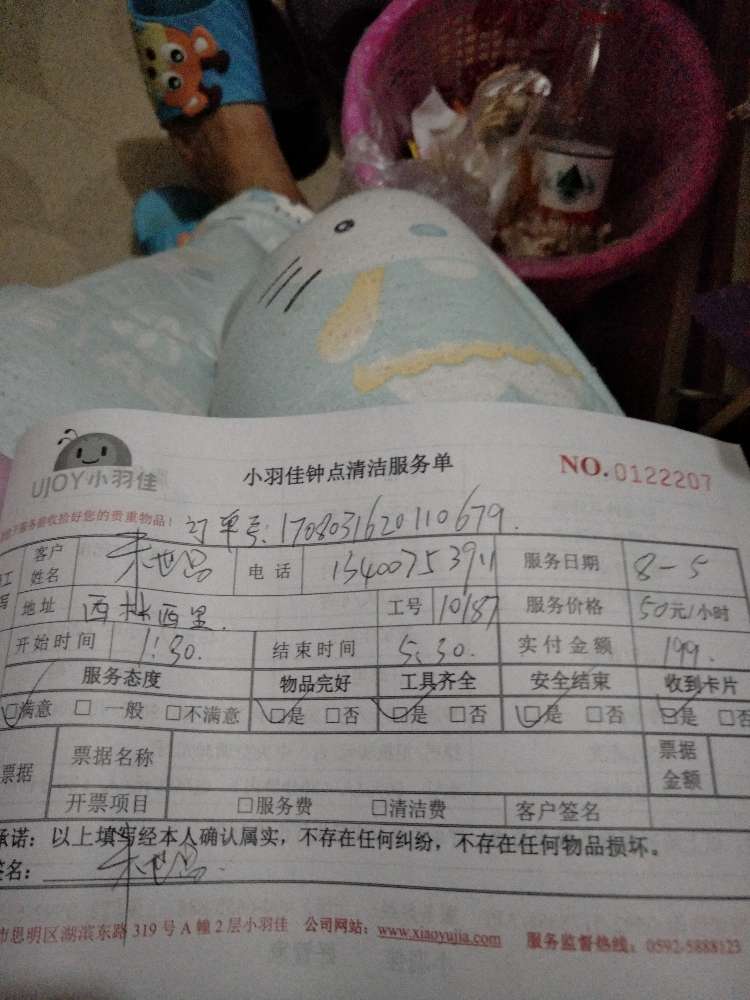 UJOY小羽佳 小羽佳钟点清洁服务单 NO.0122207
服务验收捡好您的贵重物品！ 订单号:1708031620110679.
客户姓名 电话 服务日期 8-5
地址 西林西里. 工号 10187 服务价格 50元/小时
开始时间 1:30. 结束时间 5:30. 实付金额 199.
服务态度 物品完好 工具齐全 安全结束 收到卡片
☑满意 □一般 □不满意 ☑是 □否 ☑是 □否 ☑是 □否 ☑是 □否
票据 票据名称 票据金额
开票项目 □服务费 □清洁费 客户签名
承诺：以上填写经本人确认属实，不存在任何纠纷，不存在任何物品损坏。
签名：
市思明区湖滨东路319号A幢2层小羽佳 公司网站：www.xiaoyujia.com 服务监督热线：0592-5888123